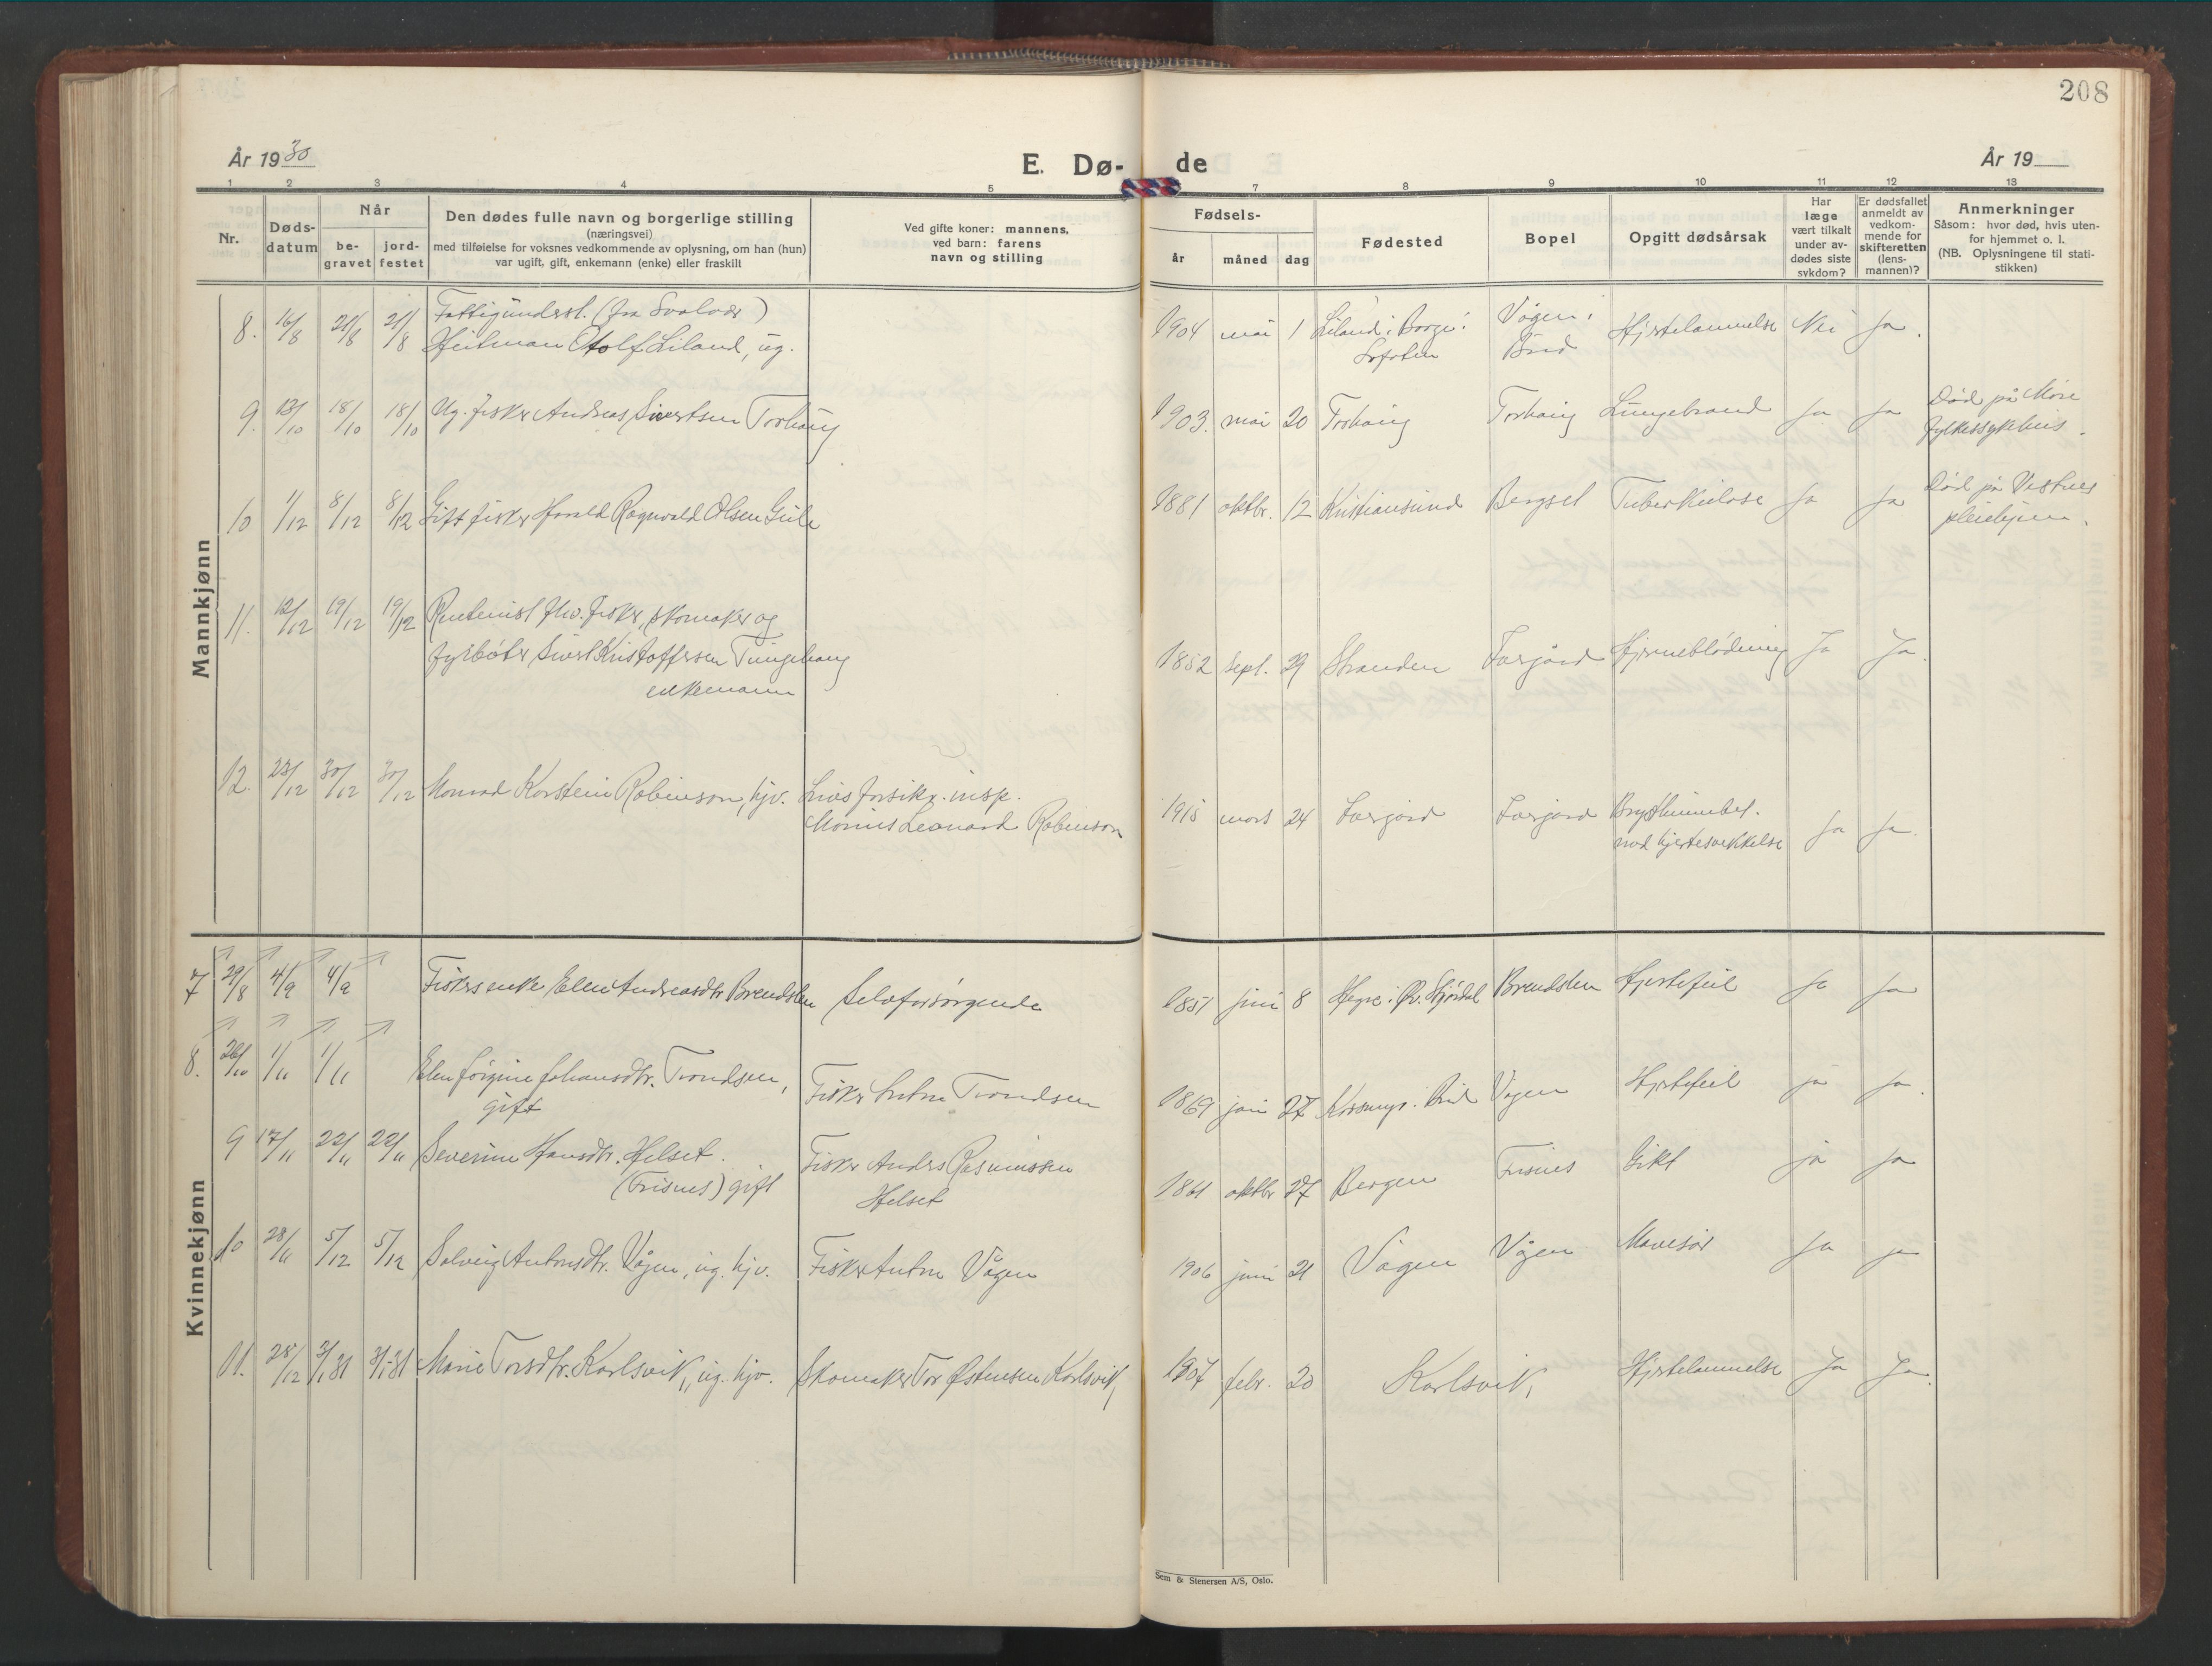 208
År 1930
E. Dø-de
År 19
1 2 3 4 5 7 8 9 10 11 12 13
Nr.
Døds-
datum
Når
be-
gravet
jord-
festet
Den dødes fulle navn og borgerlige stilling
(næringsvei)
med tilføielse for voksnes vedkommende av oplysning, om han (hun)
var ugift, gift, enkemann (enke) eller fraskilt
Ved gifte koner: mannens,
ved barn: farens
navn og stilling
Fødsels-
år
måned
dag
Fødested
Bopel
Opgitt dødsårsak
Har
læge
vært tilkalt
under av-
dødes siste
sykdom?
Er dødsfallet
anmeldt av
vedkom-
mende for
skifteretten
(lens-
mannen)?
Anmerkninger
Såsom: hvor død, hvis uten-
for hjemmet o. l.
(NB. Oplysningene til stati-
stikken)
Mannkjønn
8. 16/8 21/8 21/8 Fattigunderst. (fra Svolvær)
Heitman Otolf Liland, ug.
1904 mai 1 Liland i Borge i Lofoten
Vågen i Bud
Hjertelammelse Nei Ja.
9. 13/10 18/10 18/10 Ug. fisker Andreas Sivertsen Torhaug
1903. mai 20 Torhaug Torhaug Lungebrand Ja Ja
Död på Möre
fylkessykehus.
10 1/12 8/12 8/12 Gift fisker Harald Ragnvald Olsen Gule
1881 oktbr. 12 Kristiansund Bergset Tuberkulose Ja Ja
Död på Vestnes
pleiehjem.
11. 12/12 19/12 19/12 Rentenist fhv. fisker, skomaker og
fyrböter Sivert Kristoffersen Tungehaug
enkemann
1852 sept. 29 Stranden Farjord Hjerneblödning Ja Ja.
12. 23/12 30/12 30/12 Monrad Korstein Robinson, hjv. Livsforsikr. insp.
Monius Leonard Robinson
1915 mars 24 Farjord Farjord Brysthinnebet.
med hjertesvekkelse Ja Ja.
Kvinnekjønn
7 29/8 4/9 4/9 Fiskers enke Elen Andreasdtr Brendslen Selvforsørgende
1851 juni 8 Hegre i Ø. Stjördal Brendslen Hjertefeil Ja Ja
8. 26/10 1/11 1/11 Elen Jörgine Johansdtr. Trondsen,
gift
Fisker Anton Trondsen
1869 juni 27 Bud Vågen Hjertefeil ja Ja.
9 17/11 22/11 22/11 Severine Hansdtr. Helset.
(Frisnes) gift
Fisker Anders Rasmussen
Helset
1861 oktbr 27 Bergen Frisnes Gikt ja Ja
10 28/11 5/12 5/12 Solveig Antonsdtr. Vågen, ug. hjv. Fisker Anton Vågen
1906 juni 21 Vågen Vågen Mavesår Ja ja
11. 28/12 3/1 31 3/1-31 Marie Torsdtr. Karlsvik, ug. hjv. Skomaker Tor Østensen Karlsvik,
1907 febr. 20 Karlsvik, Hjertelammelse Ja Ja.
Sem & Stenersen A/S, Oslo.